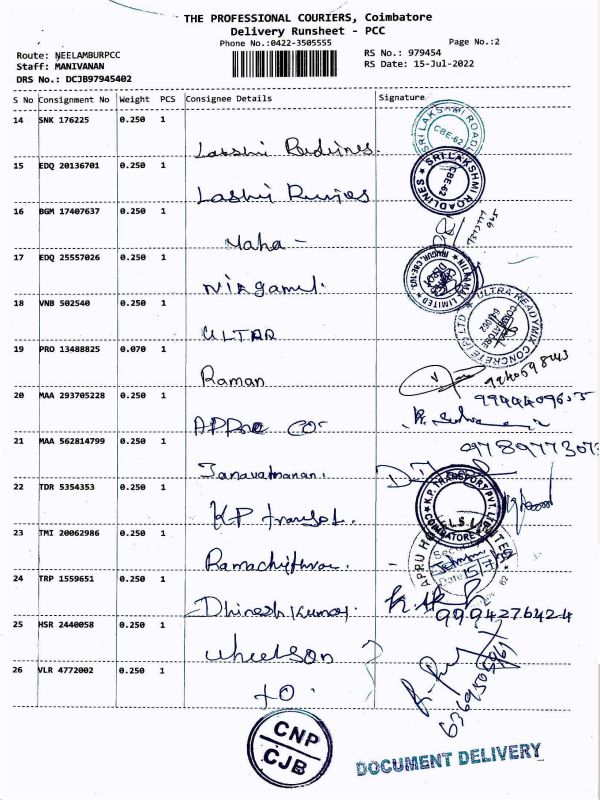 THE PROFESSIONAL COURIERS, Coimbatore
Delivery Runsheet - PCC
Phone No.:0422-3505555
Page No.:2
Route: NEELAMBURPCC
RS No.: 979454
Staff: MANIVANAN
RS Date: 15-Jul-2022
DRS No.: DCJB97945402
S No Consignment No Weight PCS Consignee Details Signature
14 SNK 176225 0.250 1
SRI LAKSHMI ROADLINES
CBE-62
15 EDQ 20136701 0.250 1
SRI LAKSHMI ROADLINES
CBE-62
16 BGM 17407637 0.250 1
Maha -
17 EDQ 25557026 0.250 1
NILKAMAL LIMITED
18 VNB 502540 0.250 1
ULTRA READYMIX CONCRETE (P) LTD
COIMBATORE
19 PRO 13488825 0.070 1
Raman
20 MAA 293705228 0.250 1
21 MAA 562814799 0.250 1
22 TDR 5354353 0.250 1
KP Transpot.
K.P. TRANSPORT PVT. LTD.
COIMBATORE
23 TMI 20062986 0.250 1
24 TRP 1559651 0.250 1
Dhinesh Kumar.
9994276424
25 HSR 2440058 0.250 1
wheelson
26 VLR 4772002 0.250 1
TO.
CNP
CJB
DOCUMENT DELIVERY